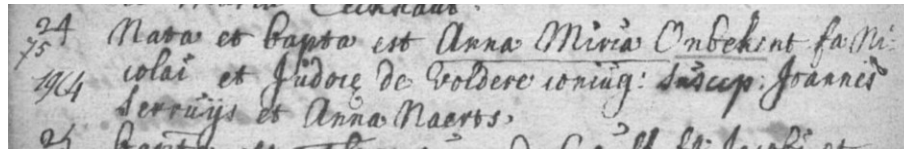 et Maria
24 Nata et bapta est Anna Miria Onbekent fa Ni-
75 colai et Judocę de Voldere coniug: suscep: Joannes
1964 Serruijs et Anna Naerts.
25 bapta